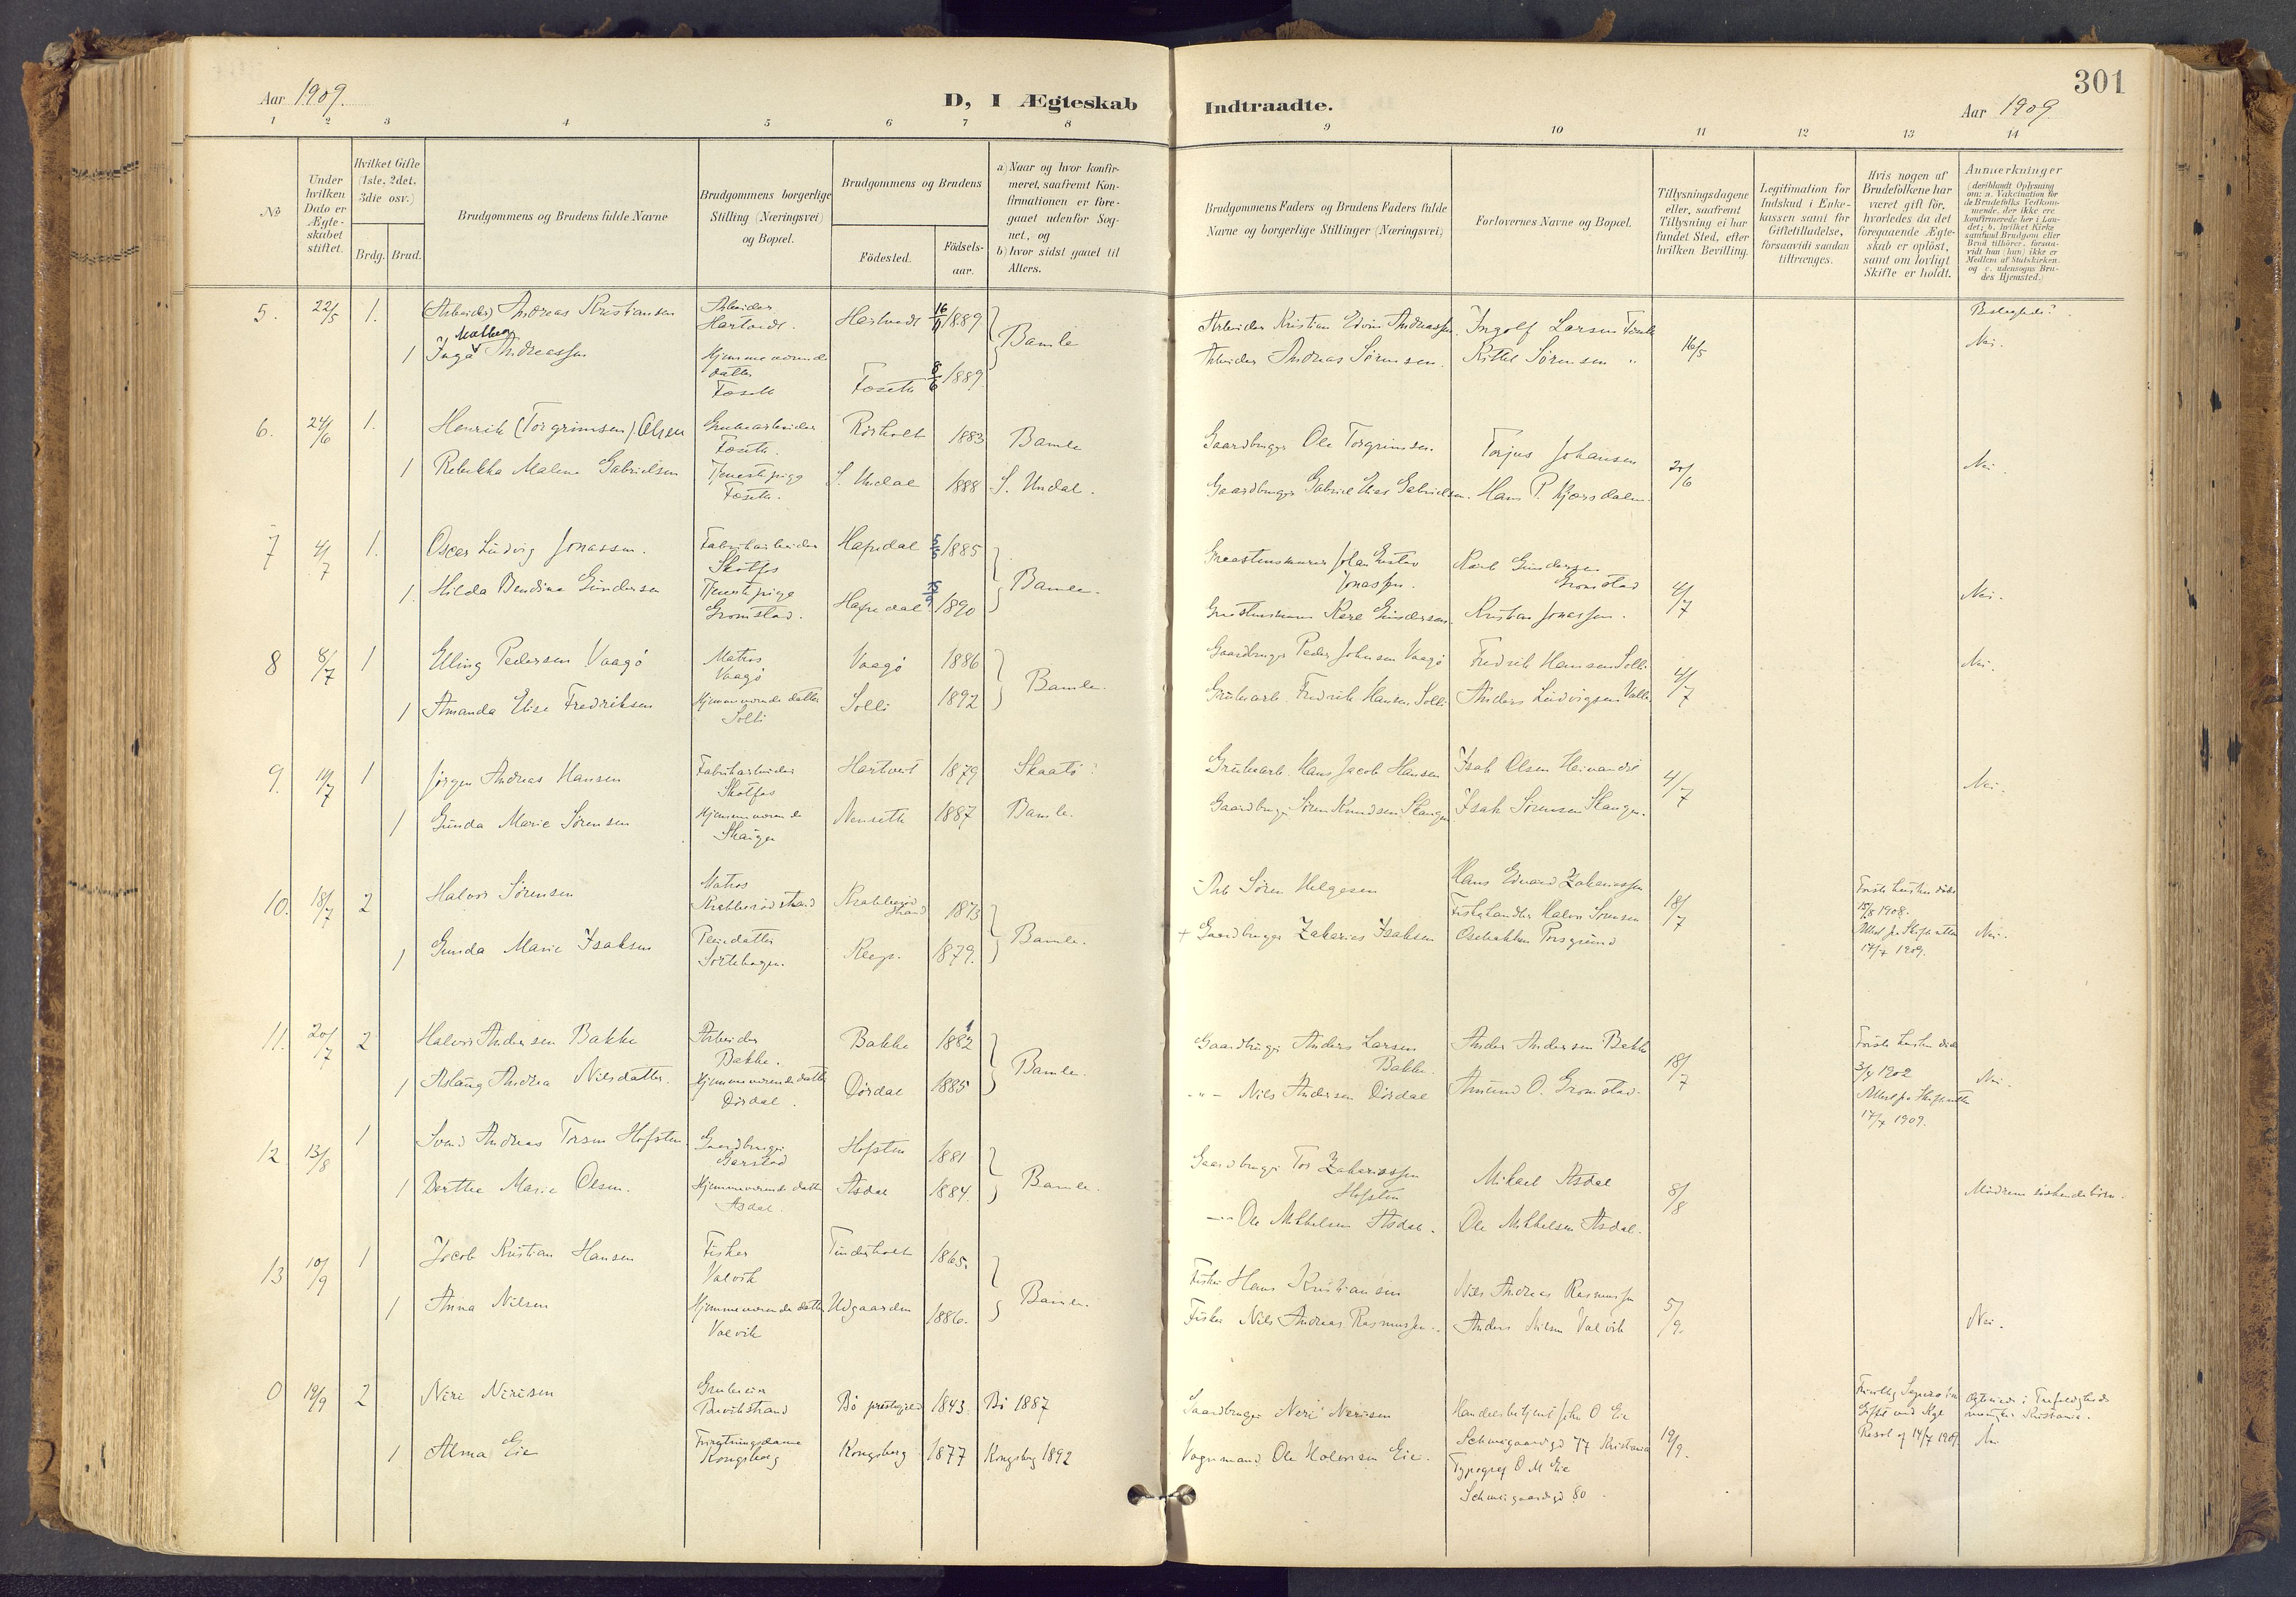 301
Aar 1909.
D, I Ægteskab
Indtraadte.
Aar 1909
1 2 3 4 5 6 7 8 9 10 11 12 13 14
No
Under hvilken Dato er Ægteskabet stiftet.
Hvilket Gifte (1ste, 2det, 3die osv.)
Brdg. Brud.
Brudgommens og Brudens fulde Navne
Brudgommens borgerlige Stilling (Næringsvei) og Bopæl.
Brudgommens og Brudens
Födested.
Födselsaar.
a) Naar og hvor konfirmeret, saafremt Konfirmationen er foregaaet udenfor Sognet, og
b) hvor sidst gaaet til Alters.
Brudgommens Faders og Brudens Faders fulde Navne og borgerlige Stillinger (Næringsvei)
Forlovernes Navne og Bopæl.
Tillysningsdagene eller, saafremt Tillysning ei har fundet Sted, efter hvilken Bevilling.
Legitimation for Indskud i Enkekassen samt for Giftetilladelse, forsaavidt saadan tiltrænges.
Hvis nogen af Brudefolkene har været gift för, hvorledes da det foregaaende Ægteskab er oplöst, samt om lovligt Skifte er holdt.
Anmærkninger
5. 22/5 1. (Arbeider) Andreas Kristiansen Arbeider Hartvedt. Hartvedt 16/9 1889 Bamle Arbeider Kristian Edvin Andreassen. Ingolf Larsen 16/5 Beslægtede?
1 Inga Mathea Andreassen Hjemmeværende datter Foseth Foseth 8/6 1889. Arbeider Andreas Sörensen. Kittil Sörensen " Nei.
6. 24/6 1. Henrik (Torgrimsen) Olsen Grubearbeider Foseth. Rörholt 1883 Bamle Gaardbruger Ole Torgrimsen. Torjus Johansen 20/6 Nei.
1 Rebekka Malene Gabrielsen Tjenestepige Foseth. S. Undal 1888 S. Undal. Gaardbruger Gabriel Elias Gabrielsen. Hans P. Kjörsdalen
7 4/7 1. Oscar Ludvig Jonassen. Fabrikarbeider Skotfos Hafsdal 1885 Bamle. Johan Gustav Jonassen. Karl Gundersen Gromstad 4/7 Nei.
1. Hilda Bendine Gundersen Tjenestepige Gromstad. Hafsdal 1890 Gundersen. Kristian Jonassen.
8 8/7 1 Elling Pedersen Vaagö Matros Vaagö Vaagö 1886 Bamle. Gaardbruger Peder Johnsen Vaagö Fredrik Hansen Solli 4/7 Nei.
1 Amanda Elise Fredriksen Hjemmeværende datter Solli Solli 1892 Grubearb. Fredrik Hansen Solli Anders Ludvigsen Valle
9. 10/7 1 Jörgen Andreas Hansen Fabrikarbeider Skotfos Hartvet 1879 Skaatö Grubearb. Hans Jacob Hansen Isak Olsen 4/7 Nei.
1 Gunda Marie Sörensen Hjemmeværende Skaugen Nenseth 1887 Bamle. Gaardbruger Sören Knudsen Skaugen Isak Sörensen Skaugen.
10. 18/7 2 Halvor Sörensen Matros Krabberödstrand Krabberödstrand 1873 Bamle. Arb Sören Helgesen Hans Edvard Zakariassen 18/7 Förste hustru död 1908.
1 Gunda Marie Isaksen Pleiedatter Sortehagen. 1879. + Gaardbruger Zakarias Isaksen Fiskehandler Halvor Sörensen Osebakken Porsgrund Attest fra Skifteretten 17/7 1909. Nei.
11. 20/7 2 Halvor Andersen Bakke Arbeider Bakke. Bakke 1882 Bamle. Gaardbruger Anders Larsen Bakke. Anders Andersen Bakke 18/7 Förste hustru död 1902
1 Aslaug Andrea Nilsdatter. Hjemmeværende datter Dördal. Dördal 1885 -"- Nils Andersen Dördal Amund O. Gromstad. Attest fra Skifteretten 17/7 1909. Nei.
12 13/8 1 Andreas Torsen Hofsten. Gaardbruger Hofsten 1881 Bamle. Gaardbruger Tor Zakariassen Hofsten Mikael Asdal 8/8
1 Berthe Marie Olsen. Hjemmeværende datter Asdal. Asdal 1884. Ole Mikkelsen Asdal. Ole Mikkelsen Asdal. Mödrene söskendebörn.
13 10/9 1 Jacob Kristian Hansen Fisker Valvik 1865. Bamle. Fisker Hans Kristiansen Nils Andreas Rasmussen 5/9.
1 Anna Nilsen Hjemmeværende datter Valvik Udgaarden 1886. Fisker Nils Andreas Rasmussen. Anders Nilsen Valvik Nei.
0 19/9 2 Neri Nerisen Grubeeier Bö prestegjeld 1843 Bö 1887 Gaardbruger Neri Nerisen Handelsbetjent John O Eie Schweigaardsgd 77 Kristiania 19/9.
1 Alma Eie Kongsberg Kongsberg 1877 Kongsberg 1892 Vognmand Ole Halvorsen Eie. Typograf O M Eie Schweigaardsgd 80